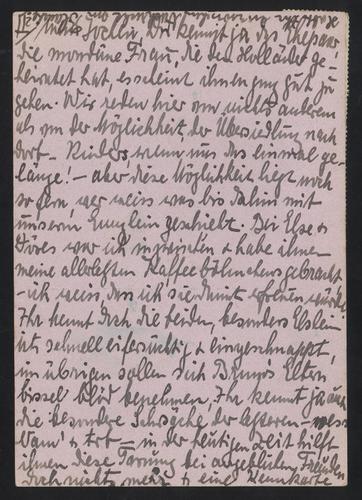 II/ sollen, Ihr kennt ja das Ehepaar
die mondäne Frau, die den Holländer ge-
heiratet hat, es scheint ihnen ganz gut zu
gehen. Wir reden hier von nichts anderem
als von der Möglichkeit, der Übersiedlung nach
dort. Kinders wenn uns das einmal ge-
länge! - aber diese Möglichkeit liegt noch
so fern, wer weiss was bis dahin mit
unserem geschieht. Bei Else +
Dores war ich inzwischen + habe ihnen
meine allerletzten Kaffeeböhnchens gebracht
- ich weiss, dass ich sie damit erfreuen würde
Ihr kennt doch die beiden, besonders Elslein
ist schnell eifersüchtig + eingeschnappt,
im übrigen sollen sich Eltern
bissel blöd benehmen. Ihr kennt ja auch
die besondere Schwäche der letzteren -
+ - in der heutigen Zeit hilft
ihnen diese Tarnung bei angeblichen Freunden
doch nichts mehr + eine Kennkarte